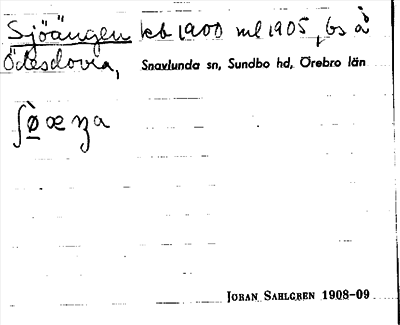 Sjöängen kb 1900 ml 1905, bs å
Ödesdovra, Snavlunda sn, Sundbo hd, Örebro län
ʃø̀æŋa
JÖRAN SAHLGREN 1908-09